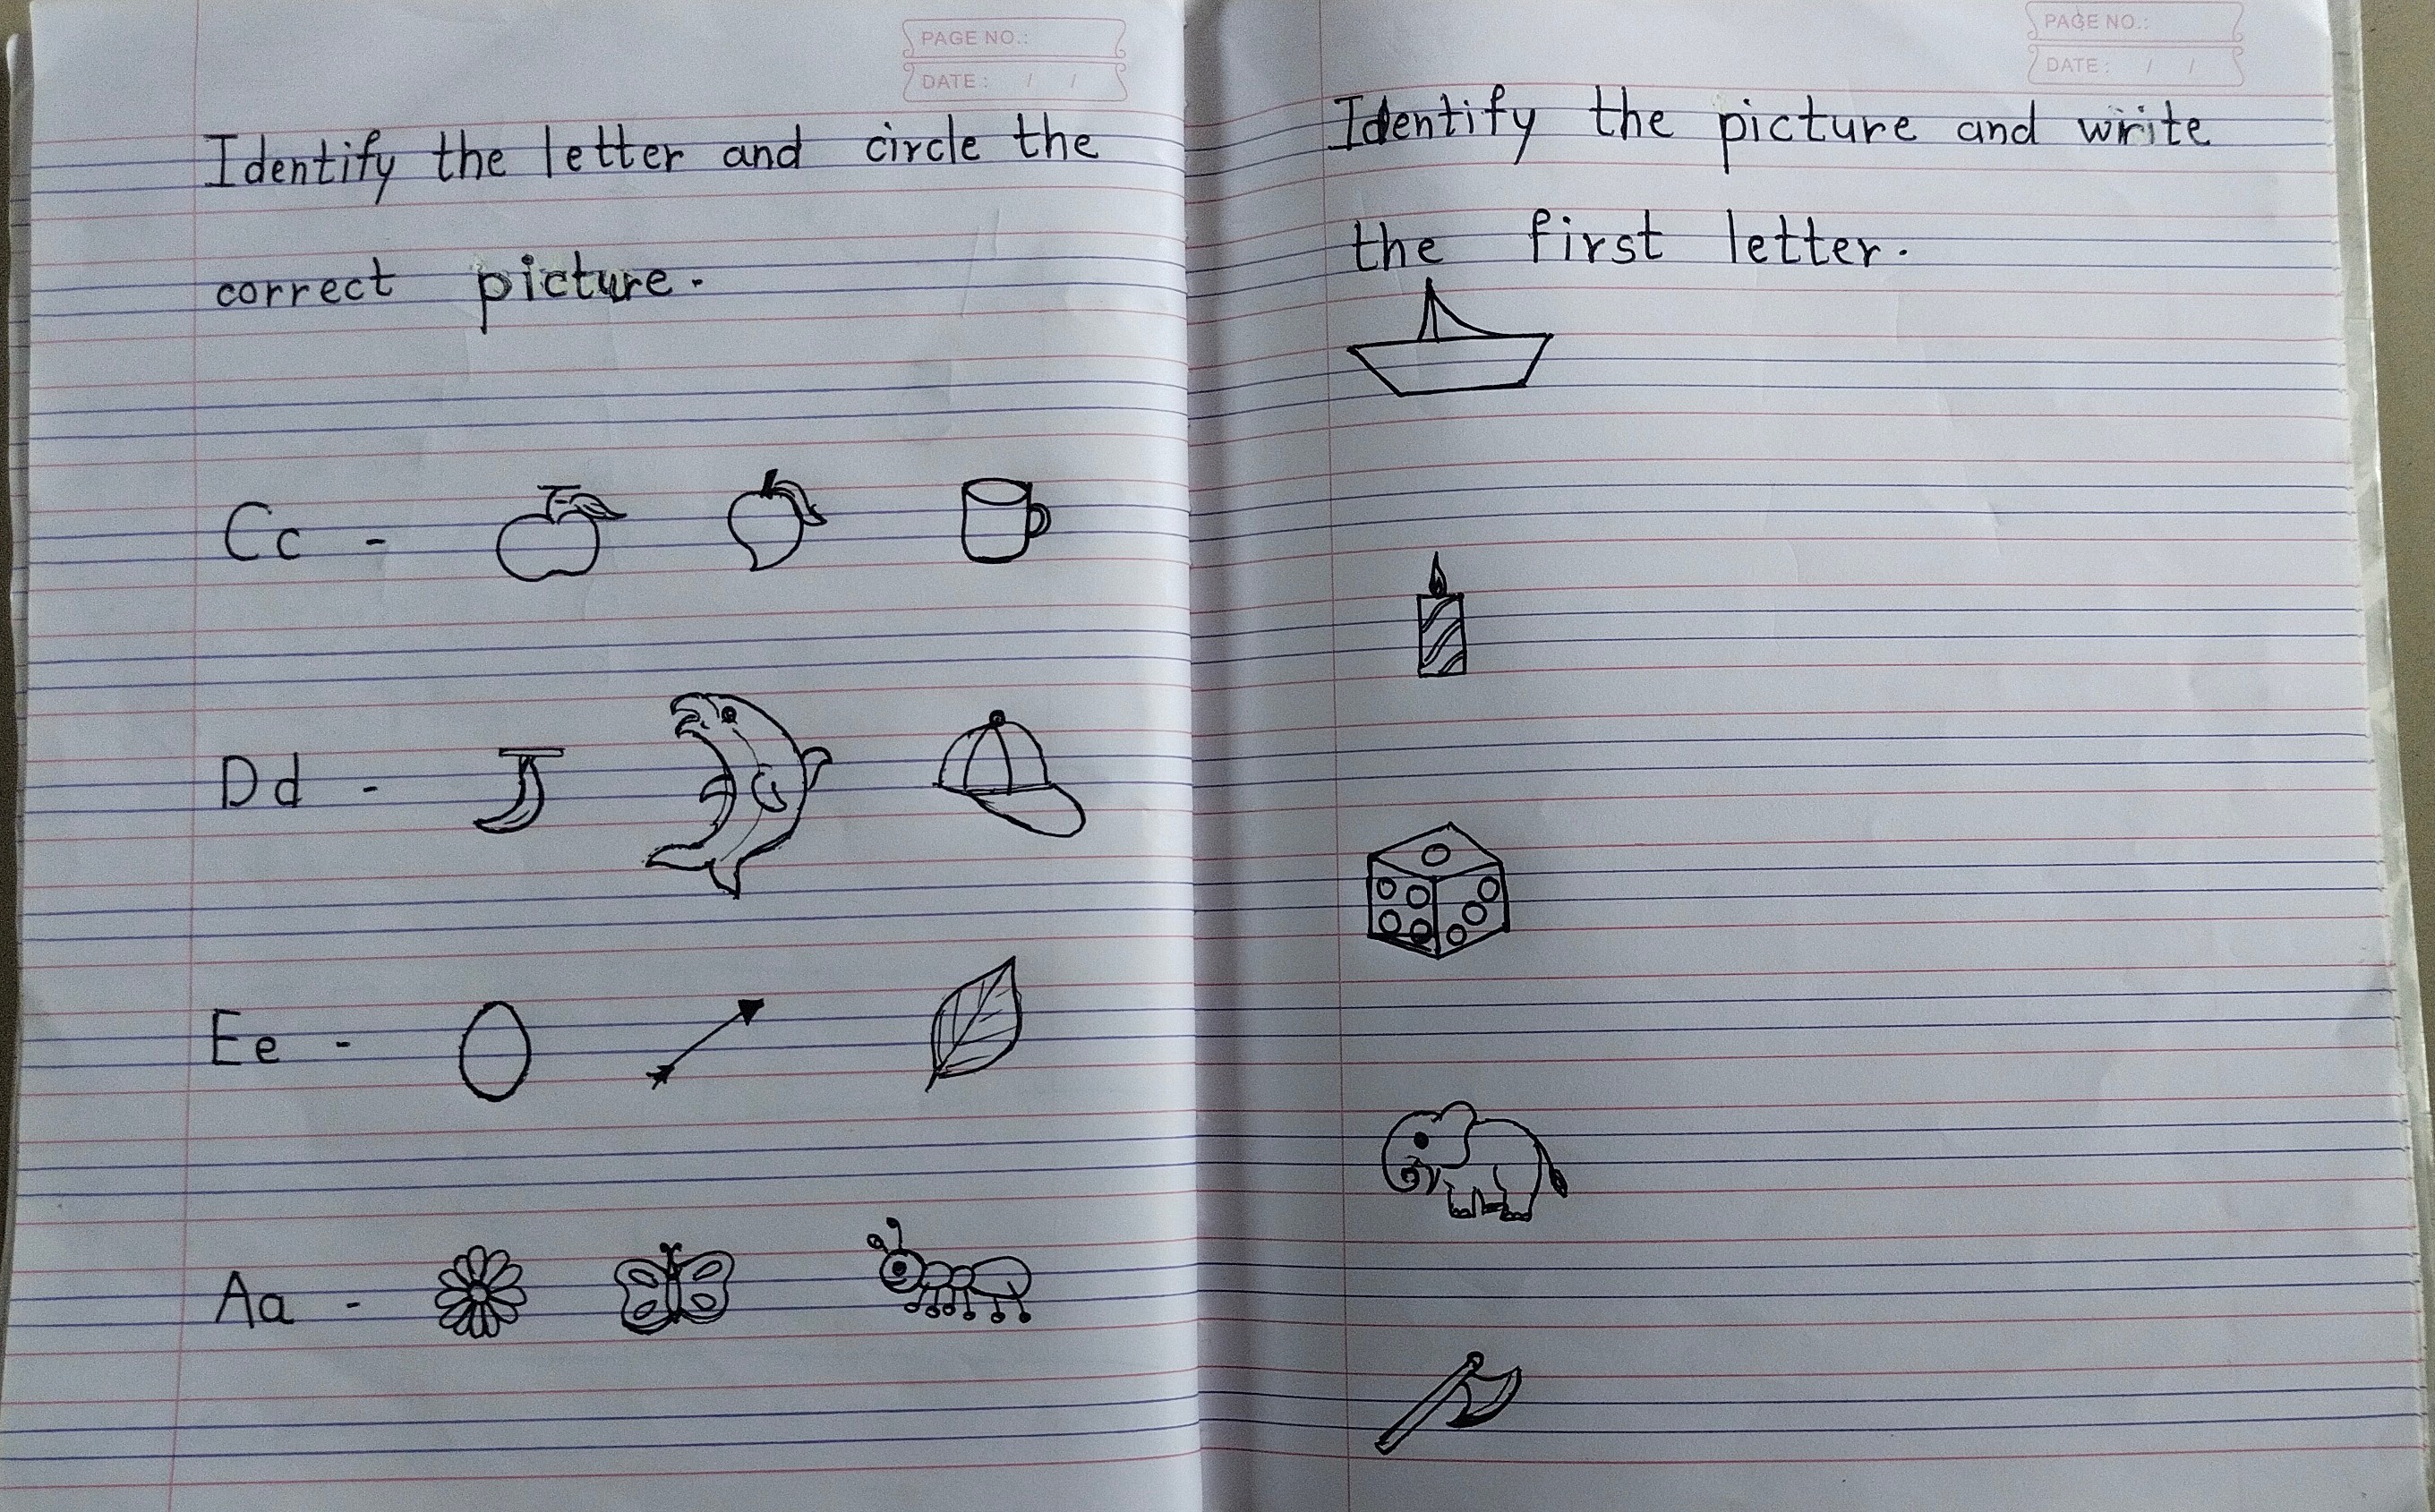 PAGE NO.:
DATE : / /
Identify the letter and circle the
correct picture.
Cc -
Dd -
Ee -
Aa -
PAGE NO.:
DATE : / /
Identify the picture and write
the first letter.